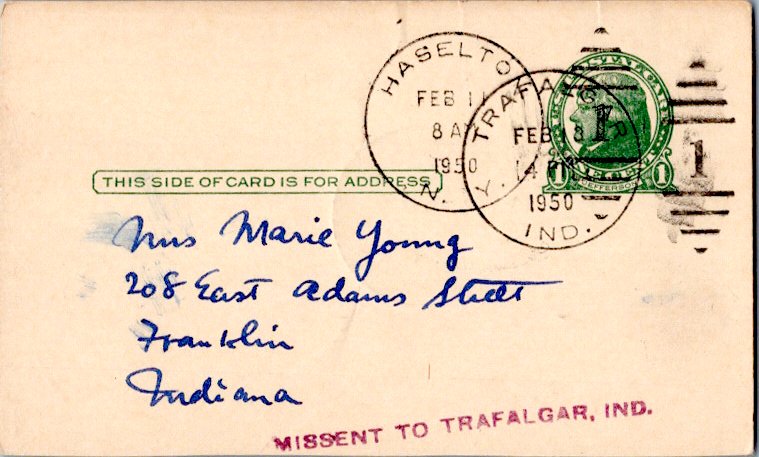 HASELTON
FEB 11
8 AM
1950
N. Y.
TRAFALGAR
FEB 18
4 PM
1950
IND.
1
1
1 JEFFERSON 1
THIS SIDE OF CARD IS FOR ADDRESS
Mrs Marie Young
208 East Adams Street
Franklin
Indiana
MISSENT TO TRAFALGAR, IND.